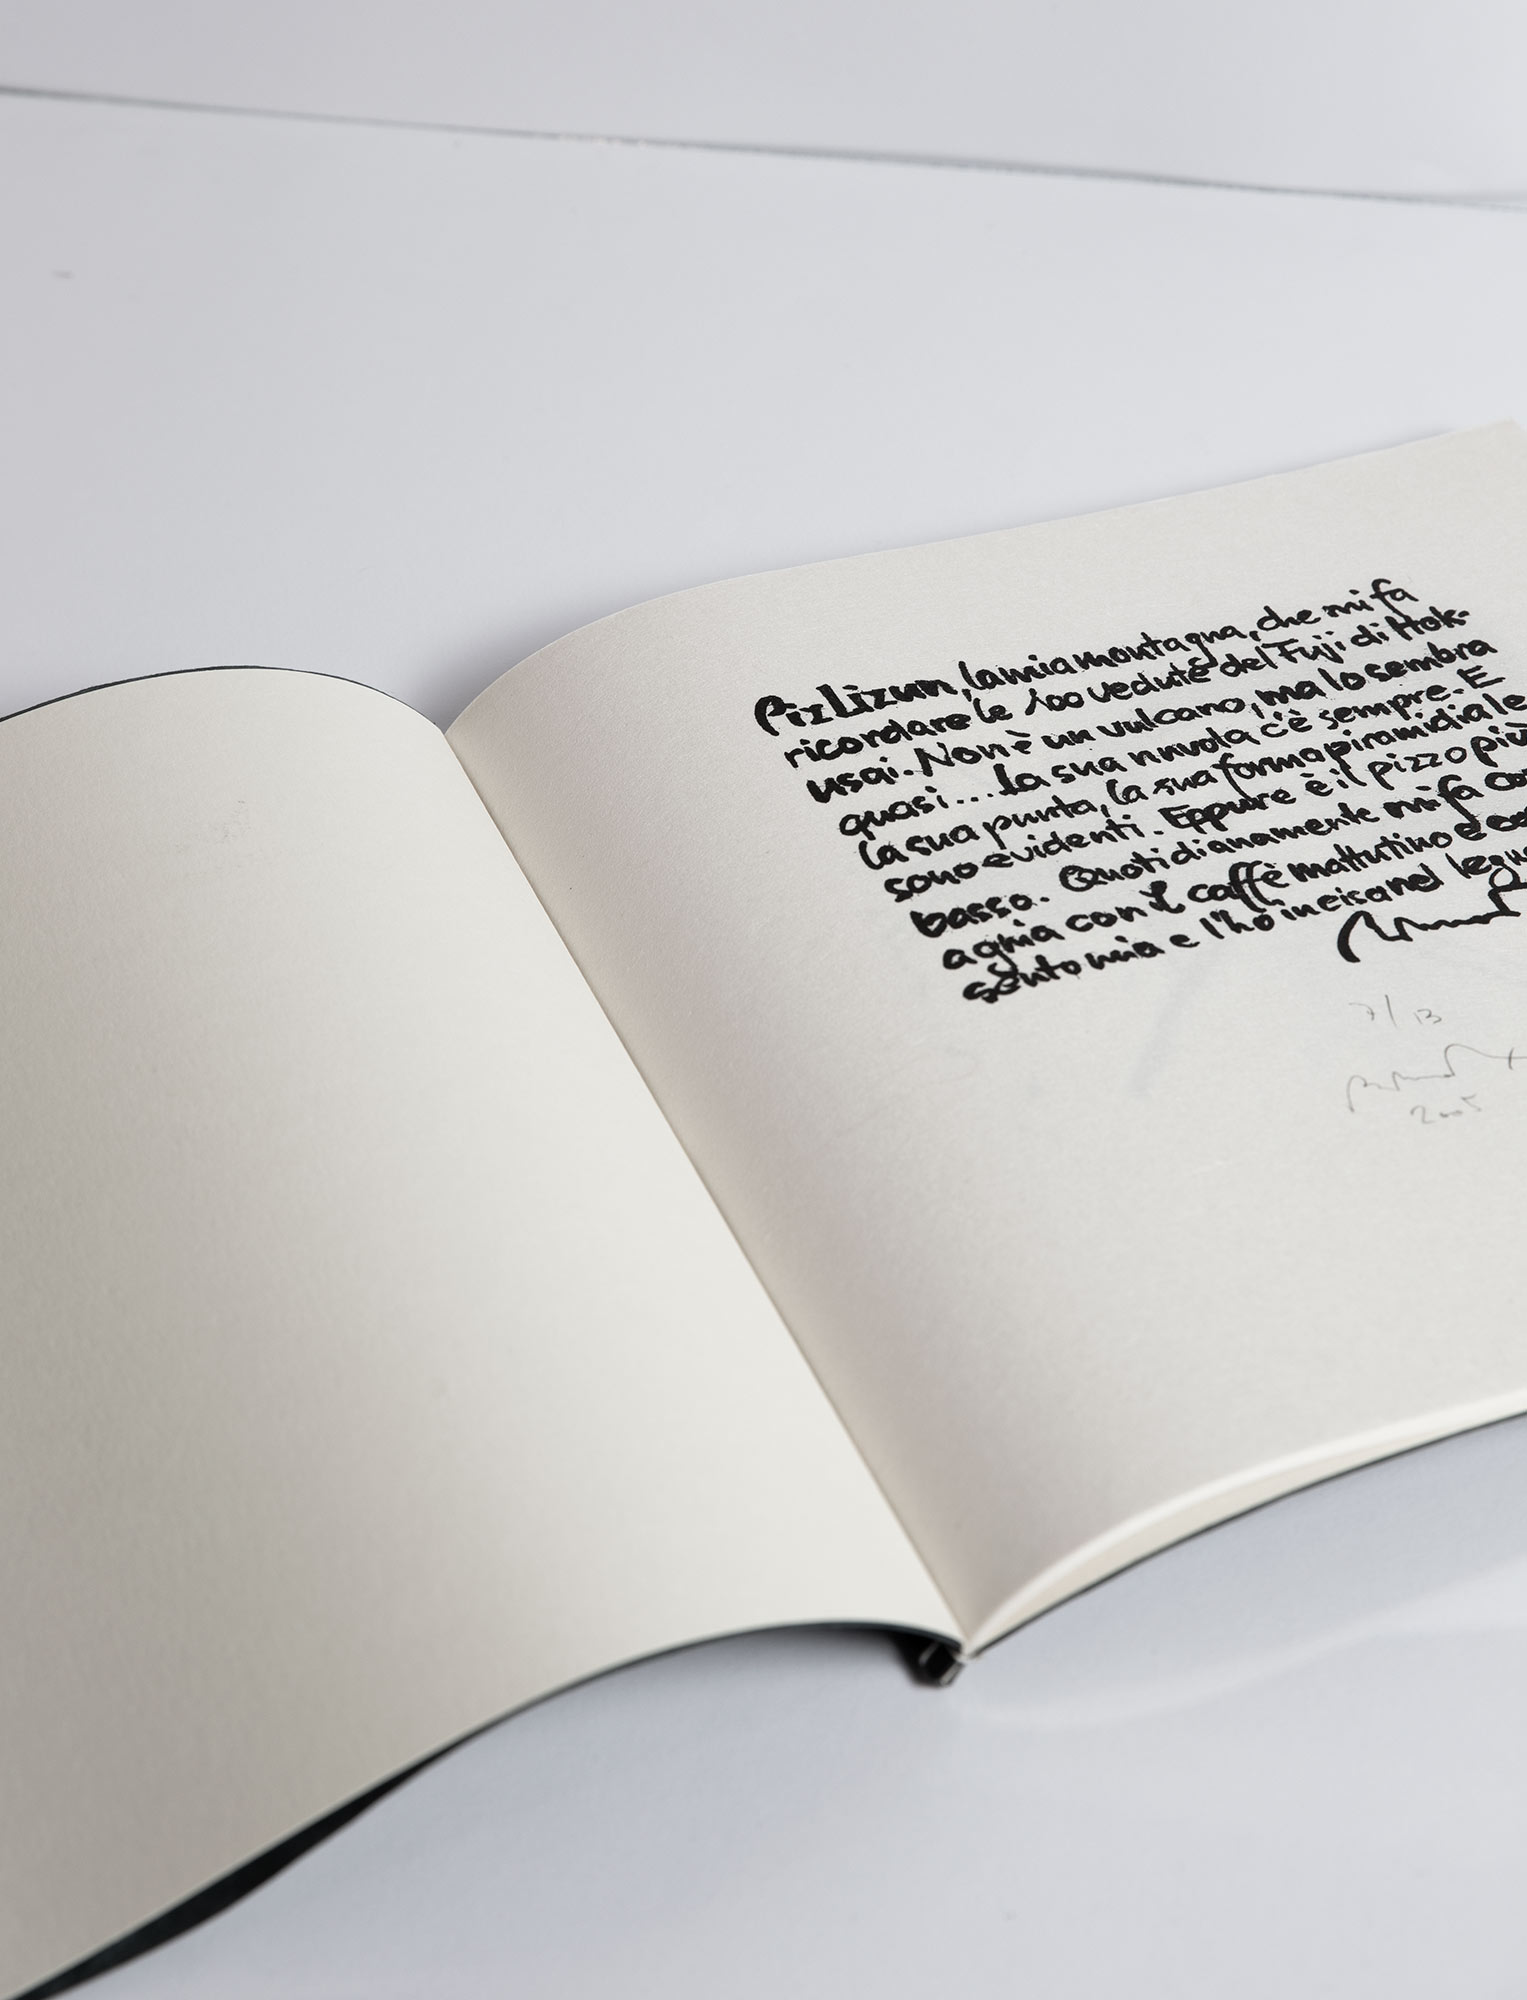 Piz Lizun, la mia montagna, che mi fa
ricordare le 100 vedute del Fuji di Hok-
usai. Non è un vulcano, ma lo sembra
quasi... La sua nuvola c'è sempre. E
la sua punta, la sua forma piramidiale
sono evidenti. Eppure è il pizzo più
basso. Quotidianamente mi fa com
agnia con il caffè mattutino e
sento mia e l'ho incisa nel legno
7/13
2005